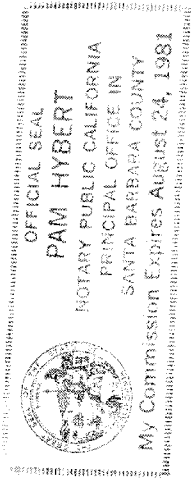 OFFICIAL SEAL
PAM HYBERT
NOTARY PUBLIC CALIFORNIA
PRINCIPAL OFFICE IN
SANTA BARBARA COUNTY
My Commission Expires August 24, 1981